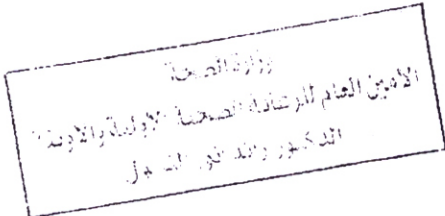 وزارة الصحة
الأمين العام للرعاية الصحية الأولية والأوبئة
الدكتور رائد